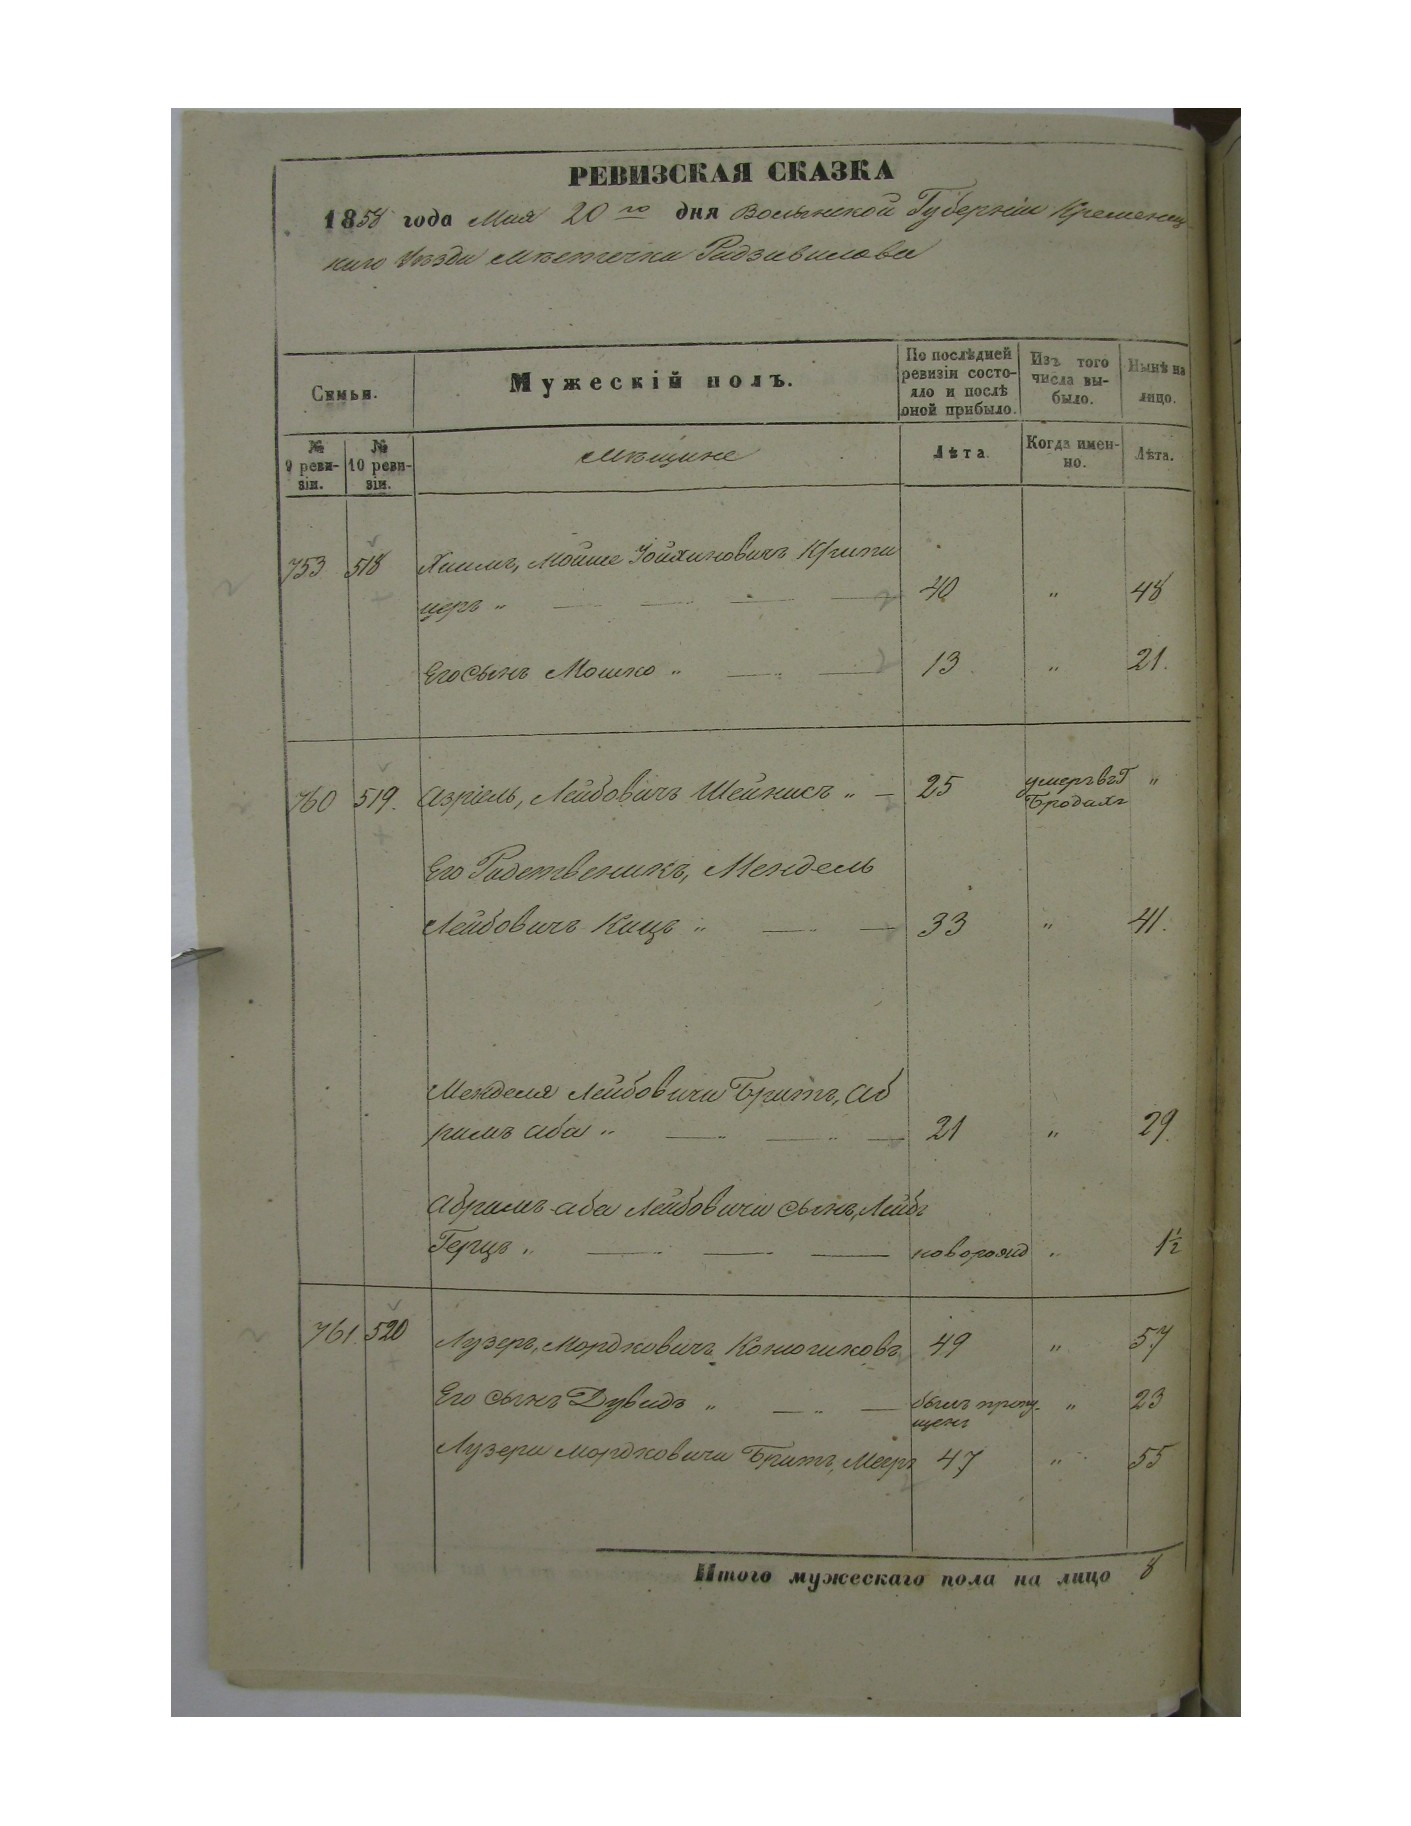 РЕВИЗСКАЯ СКАЗКА
1858 года Мая 20го дня Волынской Губерніи Кременец-
каго Уезда местечка Радзивилова
Семьи.
Мужескій полъ.
По послѣдней ревизіи состояло и послѣ оной прибыло.
Изъ того числа выбыло.
Нынѣ на лицо.
№ 9 ревизіи.
№ 10 ревизіи.
мѣщане
Лѣта.
Когда именно.
Лѣта.
753 518 Хаимъ, Мойше Іойхиновичъ
церъ „ 40 „ 48
Его сынъ Мошко „ 13 „ 21.
760 519. Азріель, Лейбовичъ Шейнисъ „ 25 умеръ въ Г „
Бродахъ
Его Родственикъ, Мендель
Лейбовичъ Кацъ „ 33 „ 41.
Менделя Лейбовича Братъ, Аб
рамъ аба „ 21 „ 29.
Абрамъ-аба Лейбовича сынъ, Лейбъ
Герцъ „ новорожд „ 1½
761. 520 Лузеръ, Мордковичъ 49 „ 57
Его сынъ Дувидъ „ былъ пропу- „ 23
щенъ
Лузера Мордковича Братъ, Мееръ 47 „ 55
Итого мужескаго пола на лицо 8